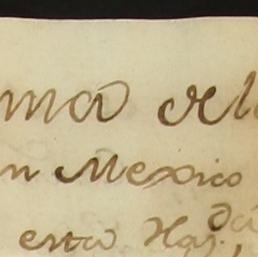 ma de l
n Mexico
esta Haz.da